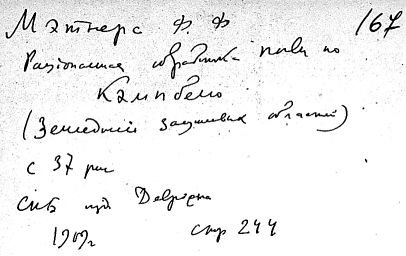 Мэтнерс Ф. Ф 167
Рационалная обработка почвы по
Кэмпбелю
(Земледелие засушливых областей)
с 37 рис
СПБ изд Девриена
1909г стр 244